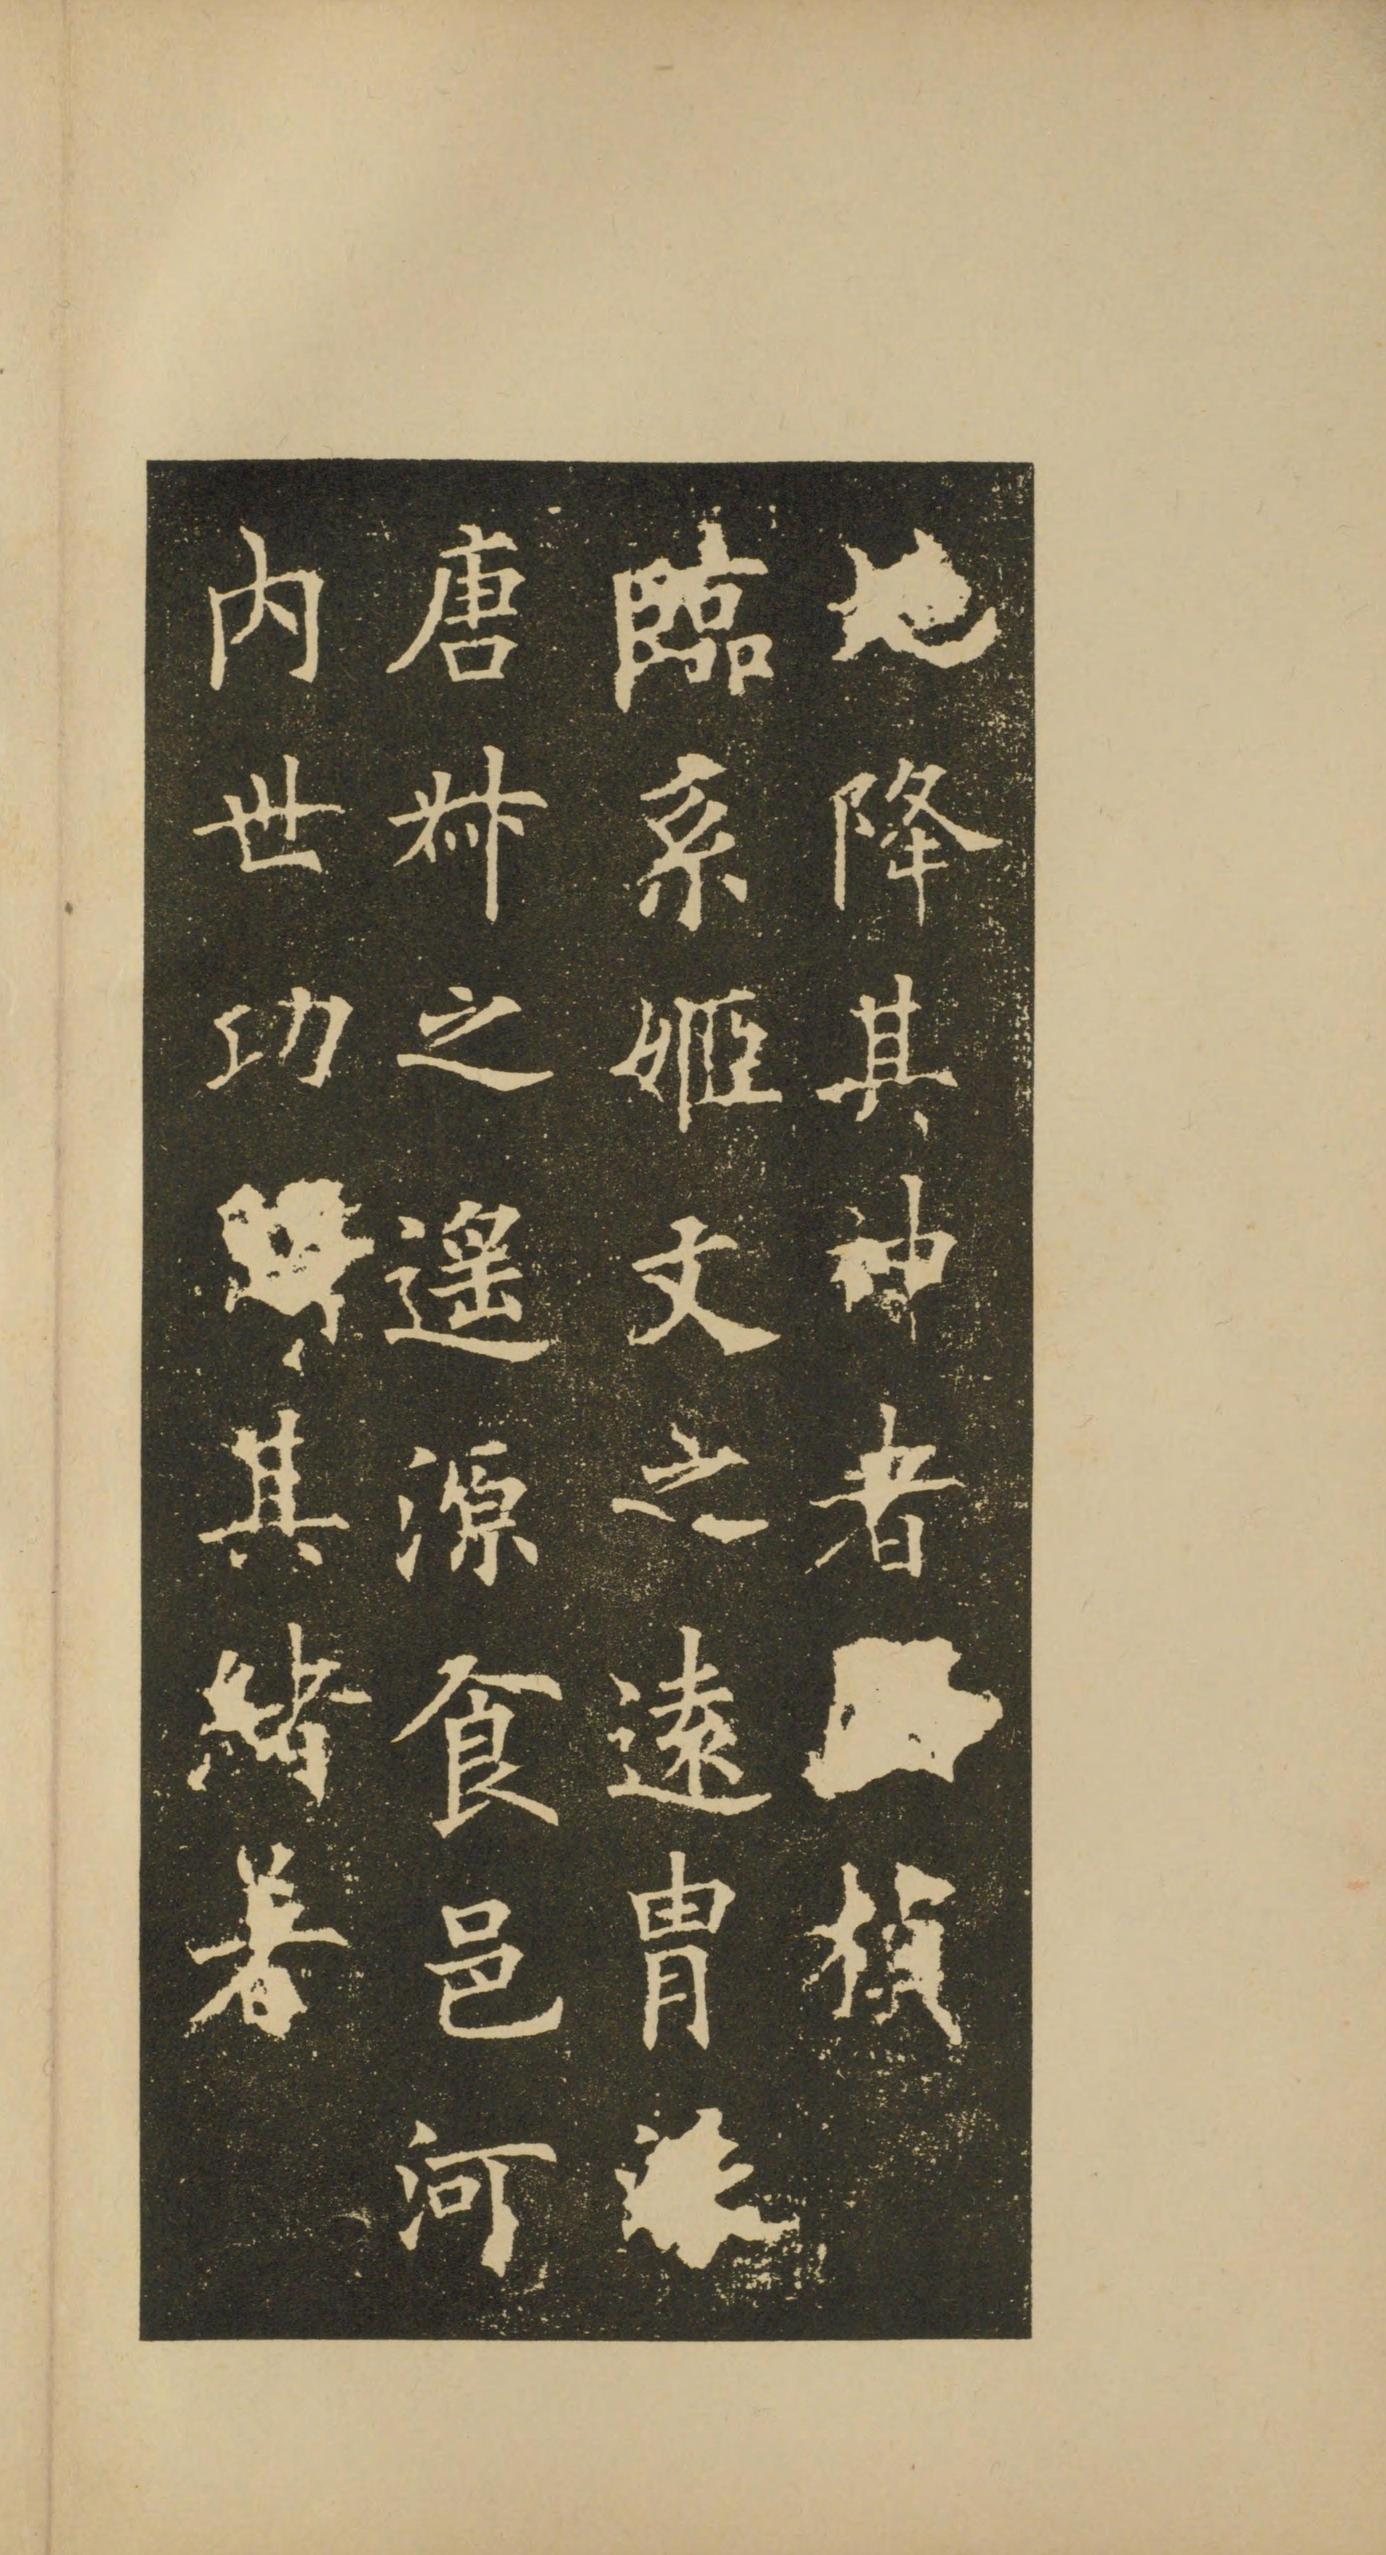 地降其神者楨
臨系姬文之遠胄派
唐叔之遥源食邑河
内世功其緒著